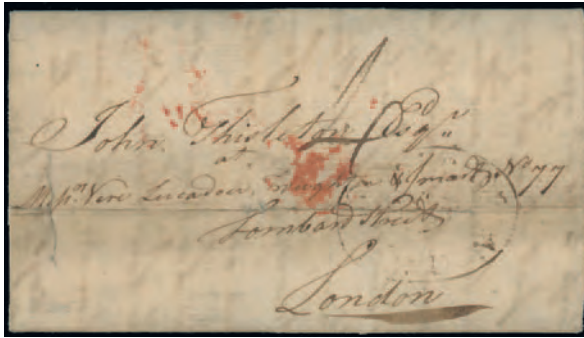 John Thisleton Esqr
at
Messrs Vere Lucadou & No 77
Lombard Street
London